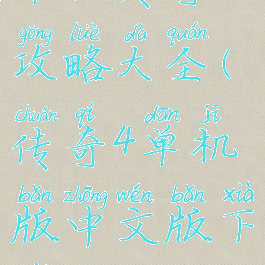 gōng lüè dà quán
攻略大全(
chuán qí dān jī
传奇4单机
bǎn zhōng wén bǎn xià
版中文版下